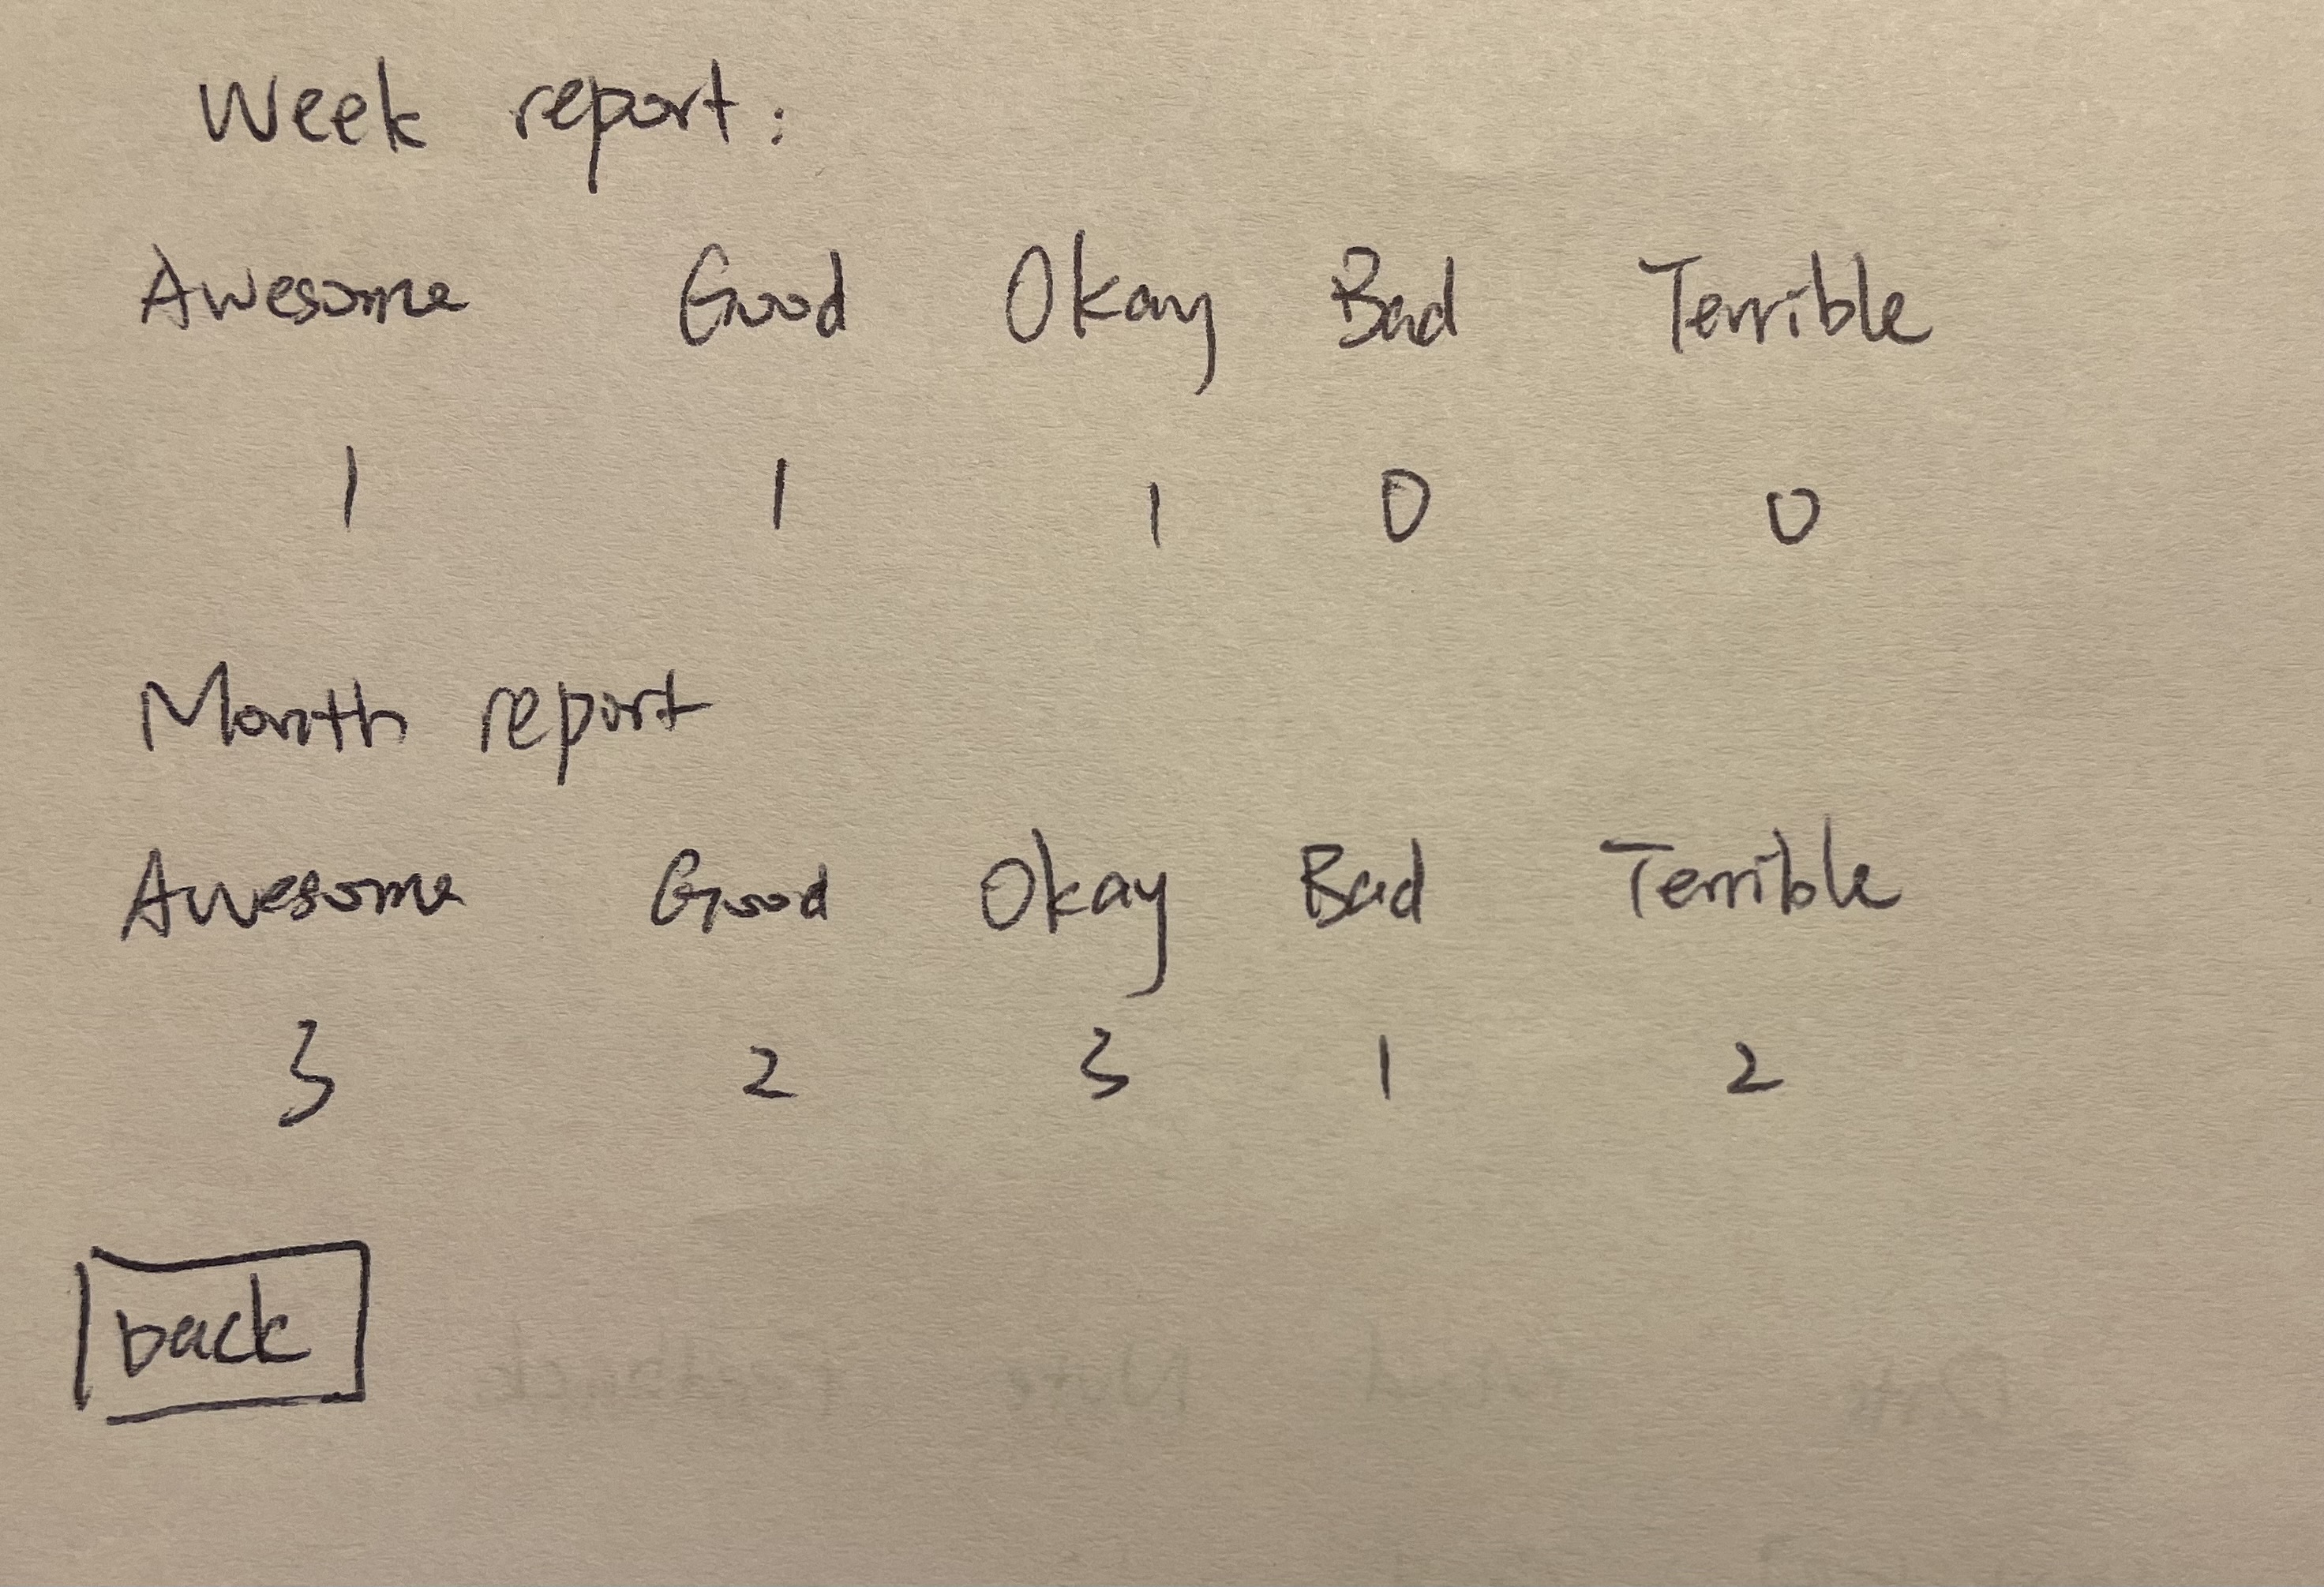 Week report:
Awesome Good Okay Bad Terrible
1 1 1 0 0
Month report
Awesome Good Okay Bad Terrible
3 2 3 1 2
back